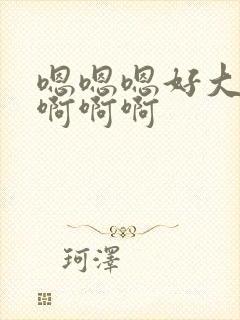 嗯嗯嗯好大
啊啊啊
珂澤